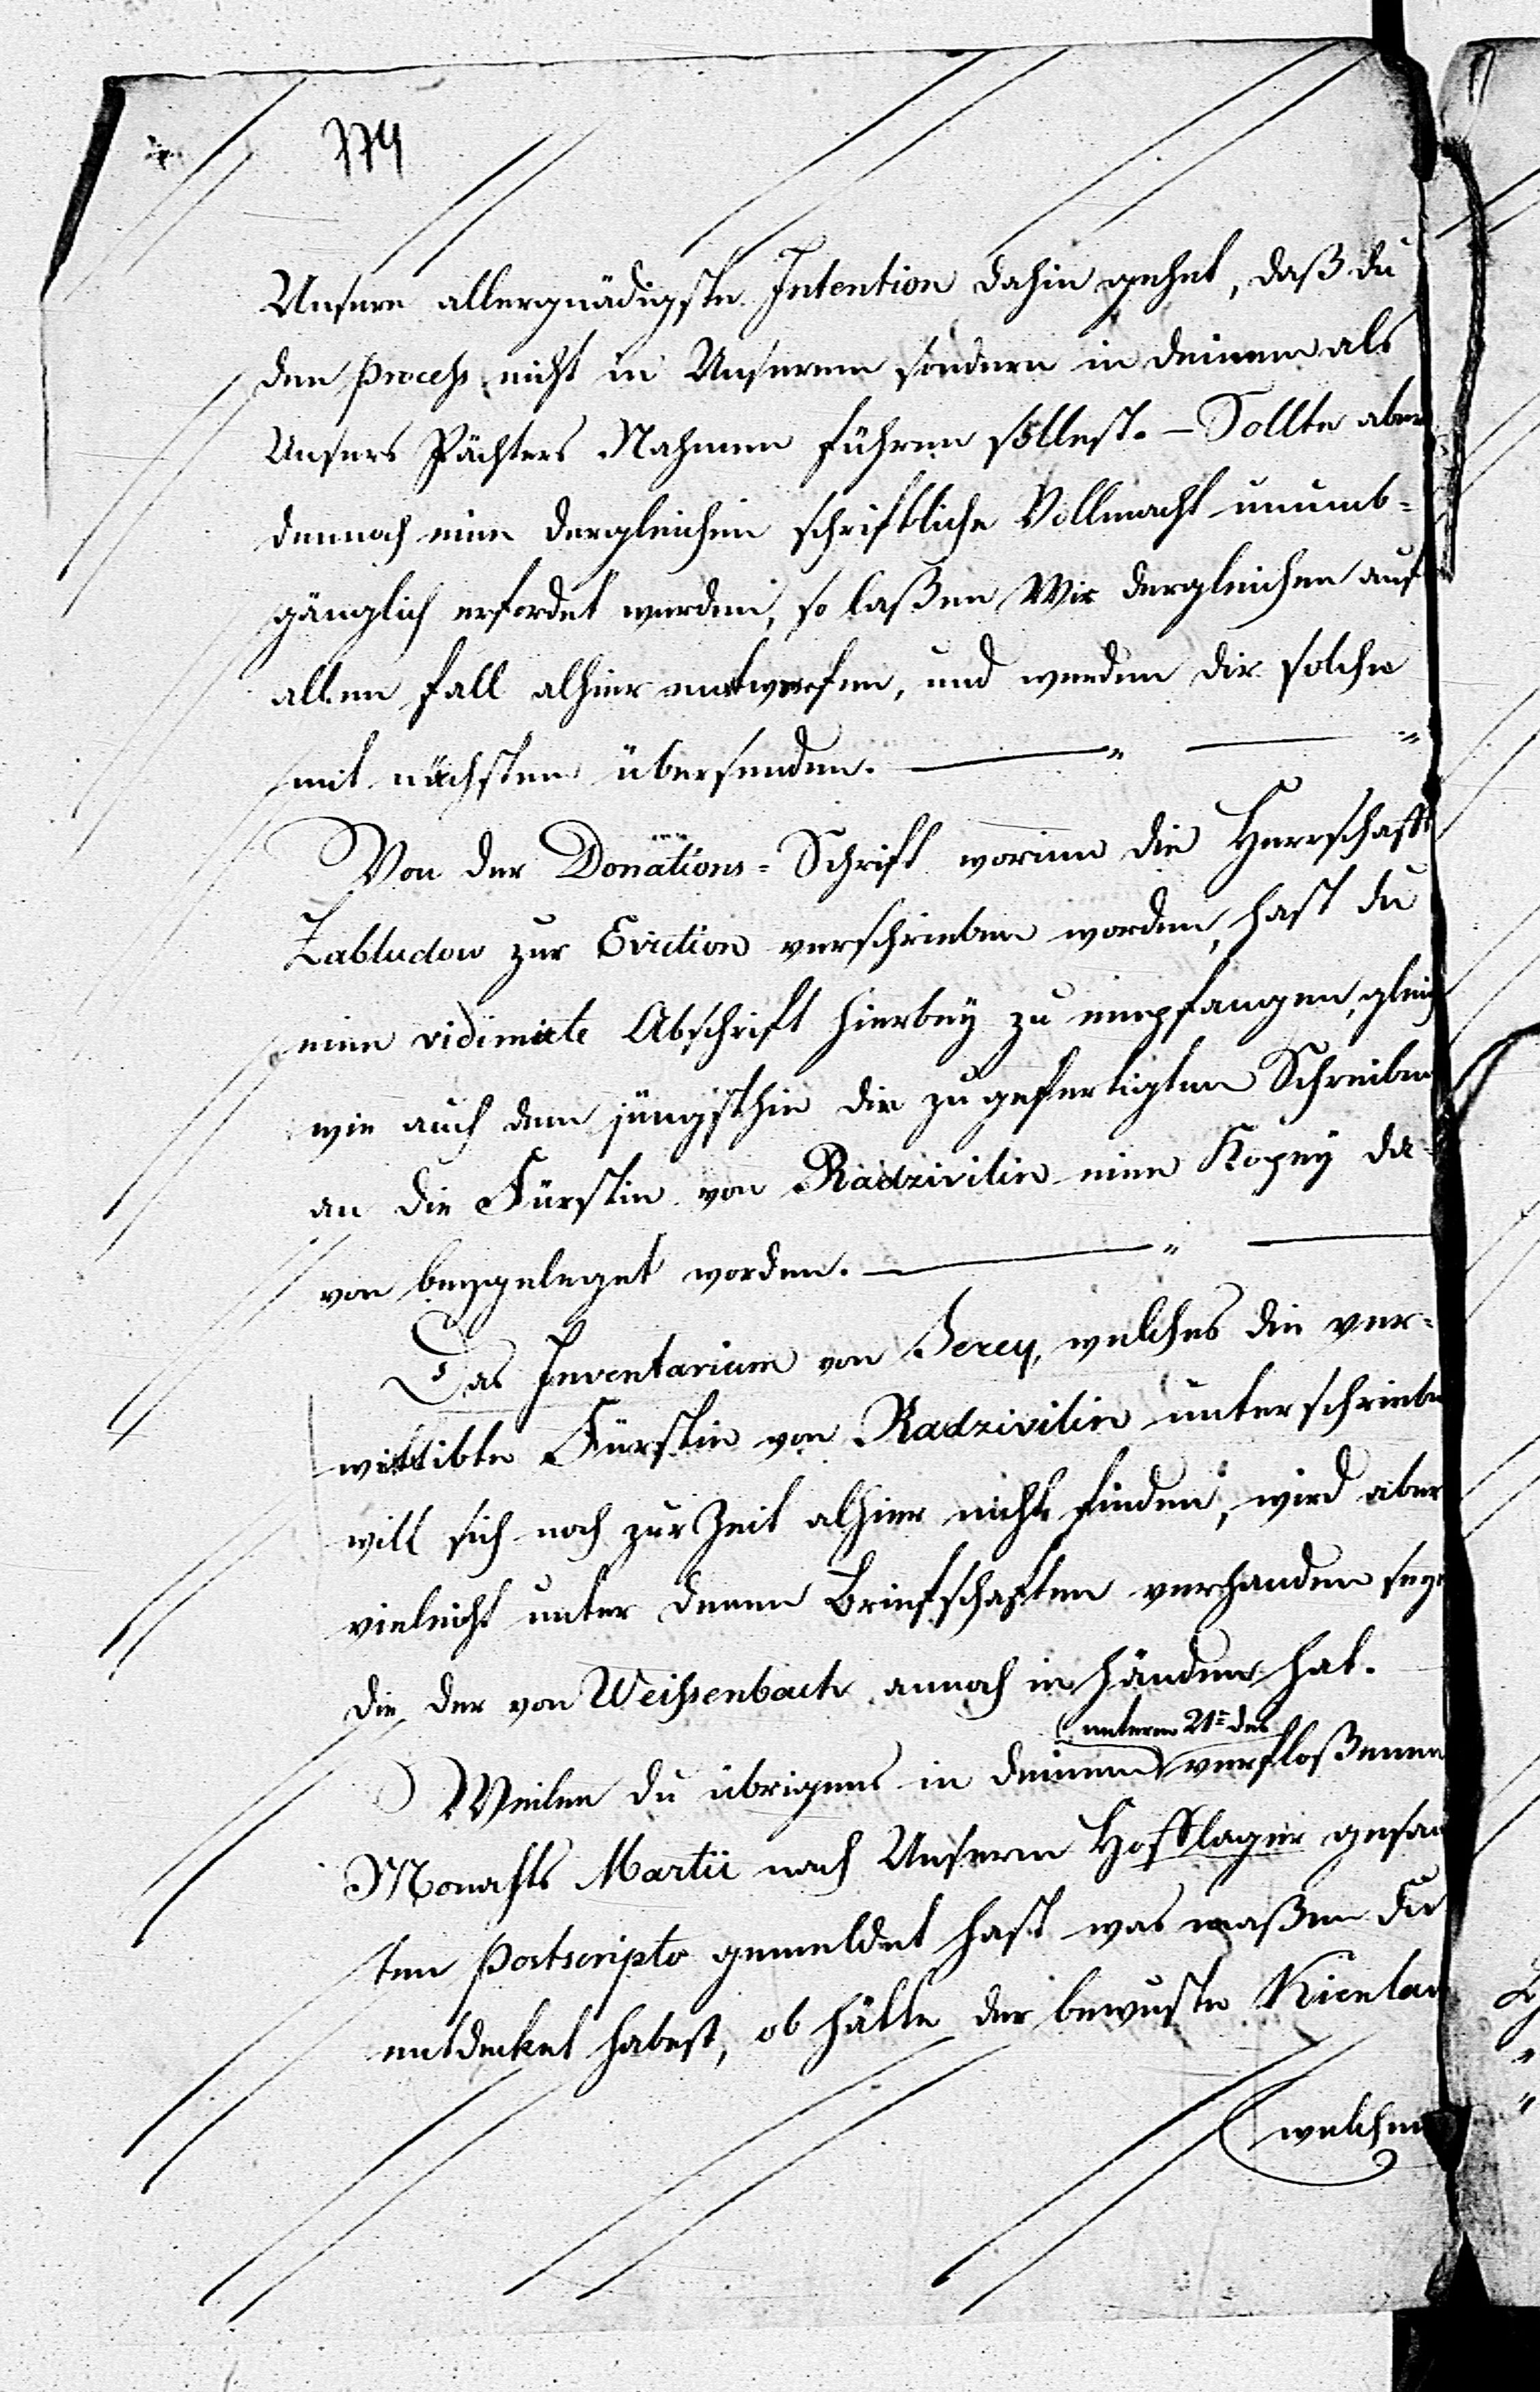 Unsere allergnädigste Intention dahin gehet, daß du
den process nicht in Unserem sondern in deinem als
Unsers Pächters Nahmen führen sollest. – Sollte aber
dennoch eine dergleichen schriftliche Vollmacht unumb-
gänglich erfordet werden, so laßen Wir dergleichen auf
allen fall alhier entwerfen, und werden dir solche
mit nächsten übersenden. — " — "
Von der Donations-Schrift worinne die Herrschafft
Zabludow zur Eviction verschrieben worden, hast du
eine vidimirte Abschrift hierbey zu empfangen, gleich
wie auch dem jüngsthin dir zugefertigten Schreiben
an die Fürstin von Radzivilin eine Kopey da-
von beygeleget worden. — " —
Das Inventarium von Serey, welches die ver-
wittibte Fürstin von Radzivilin unterschrieben
will sich noch zur Zeit alhier nicht finden, wird aber
vieleicht unter denen Briefschaften verhanden seyn
die der von Weißenbach annoch in händen hat.
unterm 21ten des
Weilen du übrigens in deinem verfloßenen
Monahts Martii nach Unserm Hofflager gesan
ten Postscripto gemeldet hast was maßen du
entdecket habest, ob hätte der bewuste Kienlan
welchen